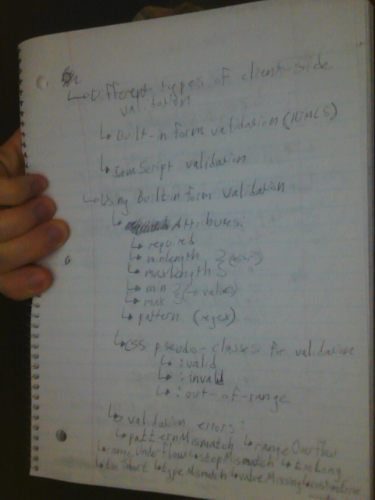 ↳ Different types of client-side
validation
↳ Built-in form validation (HTML5)
↳ JavaScript validation
↳ Using Built in form validation
↳ Attributes:
↳ required
↳ minlength
↳ maxlength
↳ min
↳ max
↳ pattern (regex)
↳ CSS pseudo-classes for validation
↳ :valid
↳ :invalid
↳ :out-of-range
↳ validation errors:
↳ patternMismatch ↳ rangeOverflow
↳ rangeUnderflow ↳ stepMismatch ↳ tooLong
↳ tooShort ↳ typeMismatch ↳ valueMissing